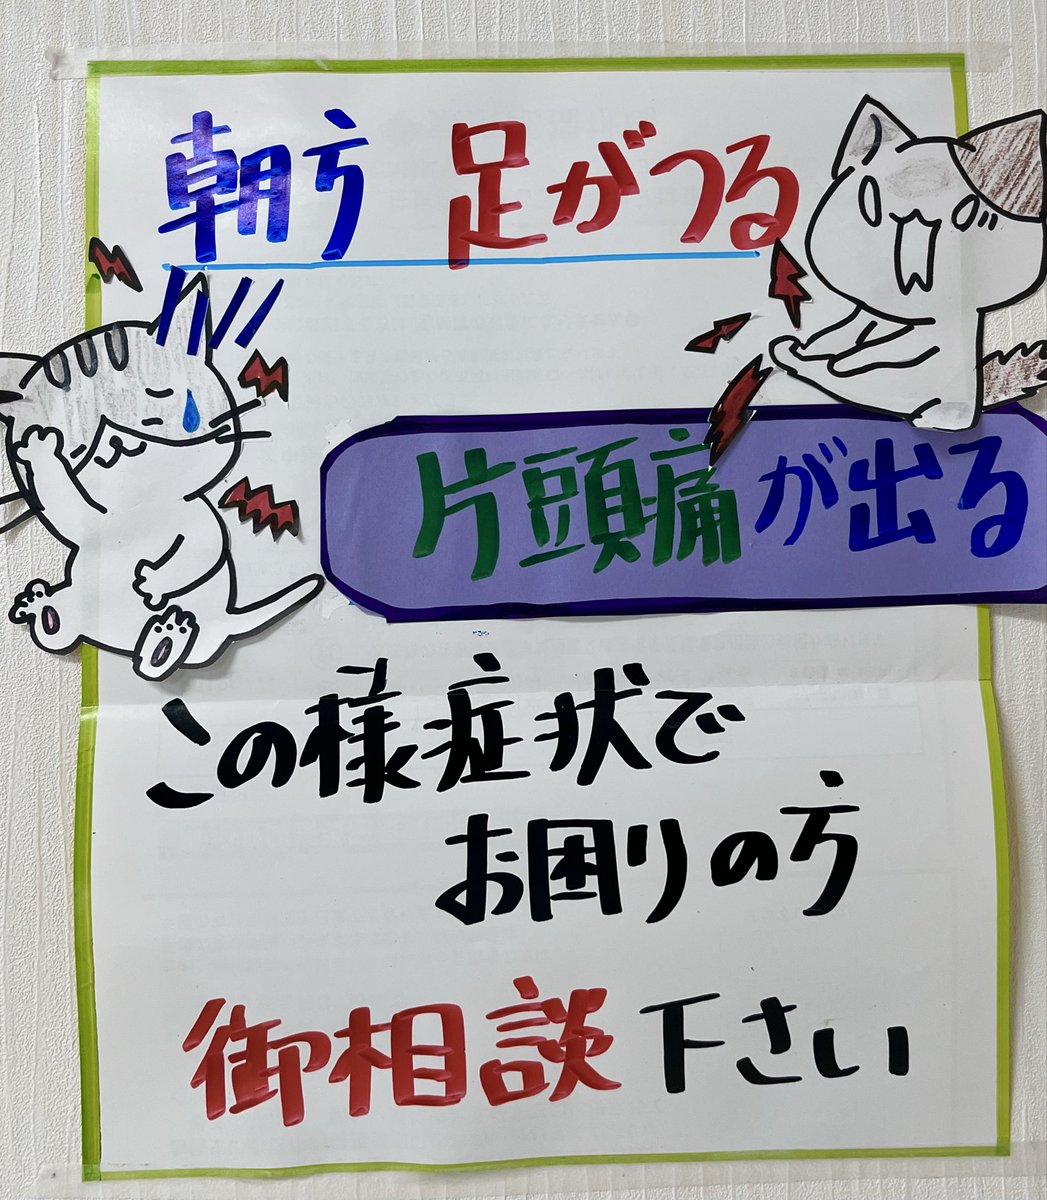 朝方 足がつる
片頭痛が出る
この様症状で
お困りの方
御相談下さい